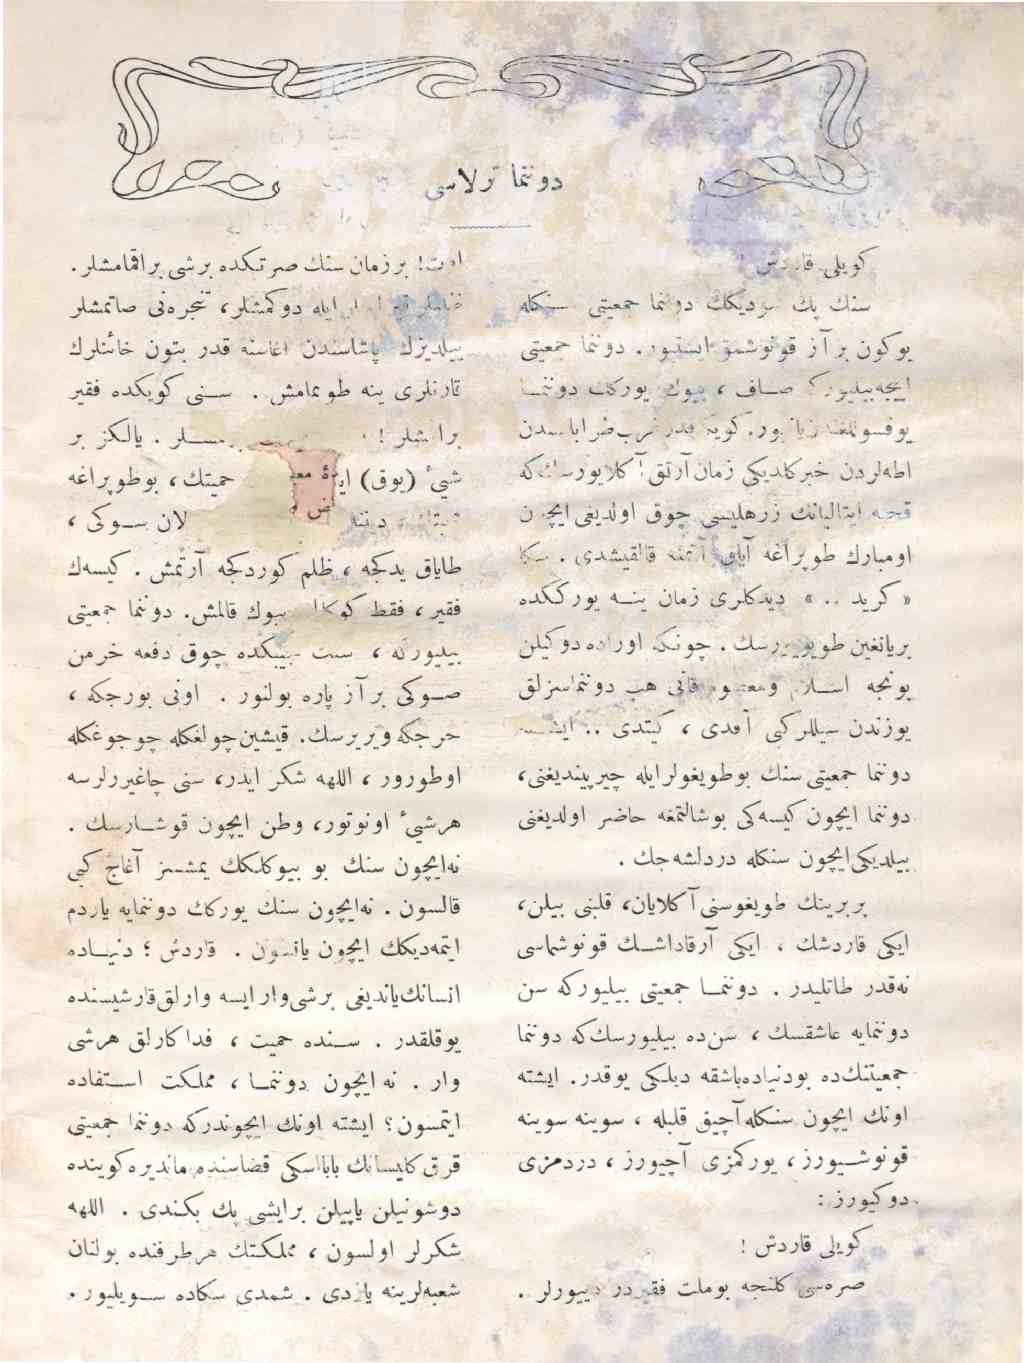 دوننما ترلاسی
كویلی قاردش !
سنك پك سودیكك دوننما جمعیتی سنكله
بوكون بر آز قونوشمق ایستیور. دوننما جمعیتی
ایجه بیلیور كه صاف ، بیوك یوركك دوننما
یوقسوللغنه یانیور. كویكه قدر غرب
اطه‌لردن خبر كلدیكی زمان آرتق آكلایورسك كه
قحبه ایتالیانك زرهلیسی چوق اولدیغی ایچون
اومبارك طوپراغه آیاق آتمغه قالقیشدی . سكا
« كرید .. » دیدكلری زمان ینه یورككده
بریانغین طویویورسك . چونكه اوراده دوكیلن
بونجه اسلام ومعصوم قانی هپ دوننماسزلق
یوزندن سیللر كبی آقدی ، كیتدی .. ایشته
دوننما جمعیتی سنك بوطویغولرایله چیرپیندیغنی،
دوننما ایچون كیسه‌كی بوشالتمغه حاضر اولدیغنی
بیلدیكی ایچون سنكله دردلشه جك .
بربرینك طویغوسنی آكلایان، قلبنی بیلن،
ایكی قاردشك ، ایكی آرقاداشك قونوشماسی
نه‌قدر طاتلیدر . دوننما جمعیتی بیلیوركه سن
دوننمایه عاشقسك ، سن‌ده بیلیورسك‌كه دوننما
جمعیتنك‌ده بودنیاده‌باشقه دیلكی یوقدر. ایشته
اونك ایچون سنكله‌آچیق قلبله ، سوینه سوینه
قونوشیورز، یوركمزی آچیورز، دردمزی
دوكیورز :
كویلی قاردش !
صره‌سی كلنجه بوملت فقیردر دییورلر .
اوت! برزمان سنك صرتكده برشی براقمامشلر.
ایله دوكمشلر، تنجره‌نی صاتمشلر
ییلدیزك پاشاسندن اغاسنه قدر بتون خائنلرك
قارنلری ینه طویمامش . سنی كویكده فقیر
براقمشلر ! یالكز بر
شیئ (یوق) حمیتك، بوطوپراغه
لان سوكی ،
طایاق یدكجه ، ظلم كوردكجه آرتمش . كیسه‌ك
فقیر، فقط كوكلك بیوك قالمش. دوننما جمعیتی
بیلیوركه ، سنك جیبكده چوق دفعه خرمن
صوكی بر آز پاره بولنور . اونی بورجكه ،
خرجكه ویریرسك. قیشین‌چولغكله چوجوغكله
اوطورور ، اللهه شكر ایدر، سنی چاغیررلرسه
هرشیئ اونوتور، وطن ایچون قوشارسك .
نه‌ایچون سنك بو بیوكلكك یمشسز آغاج كبی
قالسون . نه‌ایچون سنك یوركك دوننمایه یاردم
ایتمه‌دیكك ایچون یانسون . قاردش ؛ دنیاده
انسانك‌یاندیغی برشی‌وار ایسه وارلق‌قارشیسنده
یوقلقدر . سنده حمیت ، فداكارلق هرشی
وار . نه ایچون دوننما ، مملكت استفاده
ایتمسون؟ ایشته اونك ایچوندركه دوننما جمعیتی
قرق كلیسانك بابااسكی قضاسنده ماندیره‌كوینده
دوشونیلن یاپیلن برایشی پك بكندی . اللهه
شكرلر اولسون ، مملكتك هرطرفنده بولنان
شعبه‌لرینه یازدی . شمدی سكاده سویلیور.